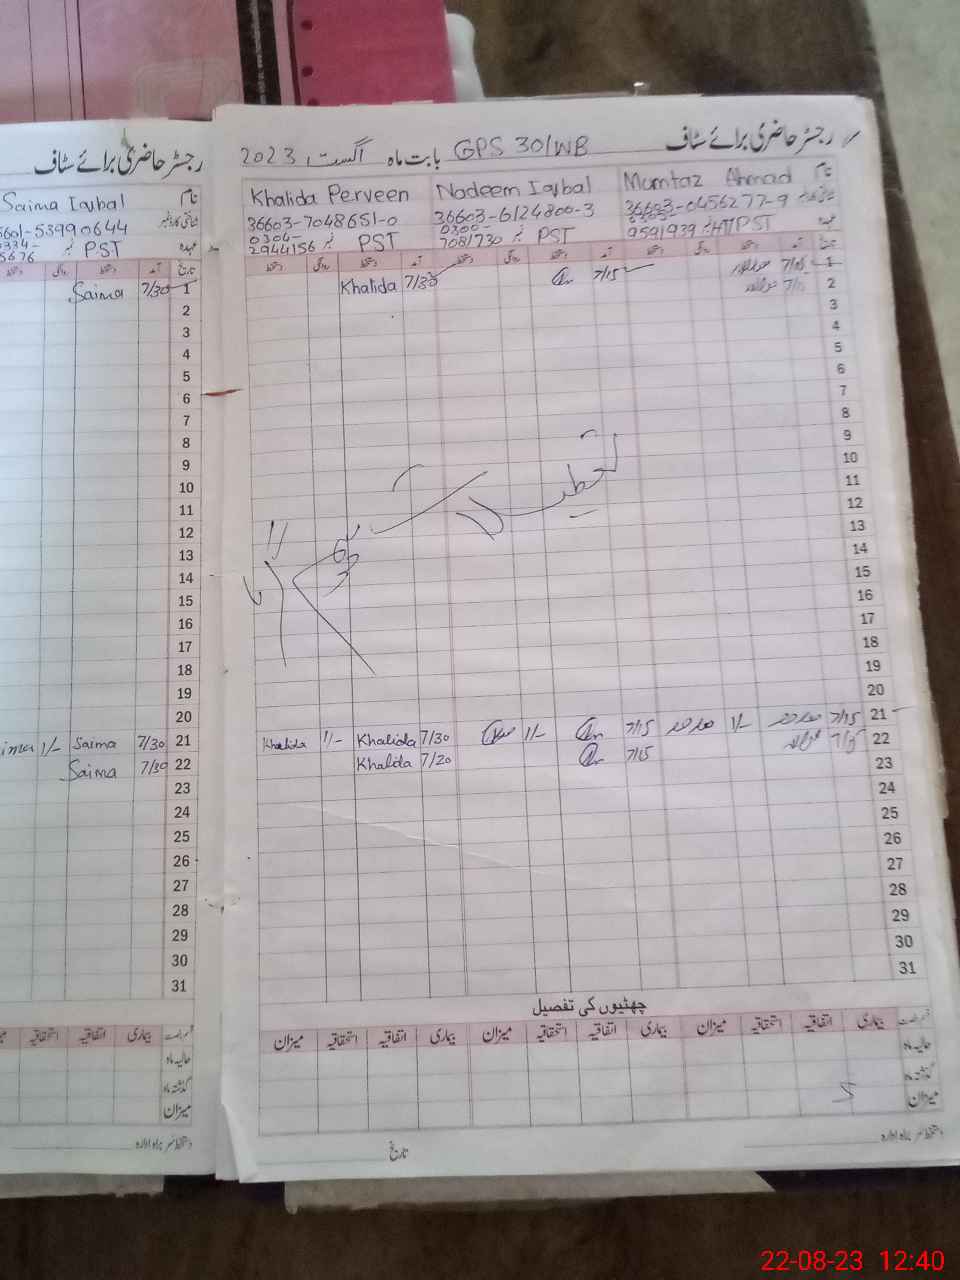 رجسٹر حاضری برائے سٹاف
نام
Saima Iqbal
53990644
عہدہ PST نمبر 0334-
5676
تاریخ آمد دستخط روانگی دستخط
1 7/30 Saima
2
3
4
5
6
7
8
9
10
11
12
13
14
15
16
17
18
19
20
21 7/30 Saima 1/-
22 7/30 Saima
23
24
25
26
27
28
29
30
31
بیماری اتفاقیہ استحقاقیہ
حالیہ ماہ
گذشتہ ماہ
میزان
دستخط سربراہ ادارہ
رجسٹر حاضری برائے سٹاف GPS 30/WB بابت ماہ اگست 2023
نام Mumtaz Ahmad Nadeem Iqbal Khalida Perveen
36603-0456277-9 36603-6124800-3 36603-7048651-0
0300- 0304-
عہدہ PST نمبر 9591939 PST نمبر 7081730 PST نمبر 2944156
تاریخ آمد دستخط روانگی دستخط آمد دستخط روانگی دستخط آمد دستخط روانگی دستخط
1 7/15 7/15 7/30 Khalida
2
3
4
5
6
7
8
9
10
11
12
13
14
15
16
17
18
19
20
تعطیلات
21 7/15 1/- 7/15 1/- 7/30 Khalida 1/- Khalida
22 7/15 7/15 7/20 Khalida
23
24
25
26
27
28
29
30
31
چھٹیوں کی تفصیل
بیماری اتفاقیہ استحقاقیہ میزان بیماری اتفاقیہ استحقاقیہ میزان بیماری اتفاقیہ استحقاقیہ میزان
حالیہ ماہ
گذشتہ ماہ
میزان
دستخط سربراہ ادارہ تاریخ
22-08-23 12:40